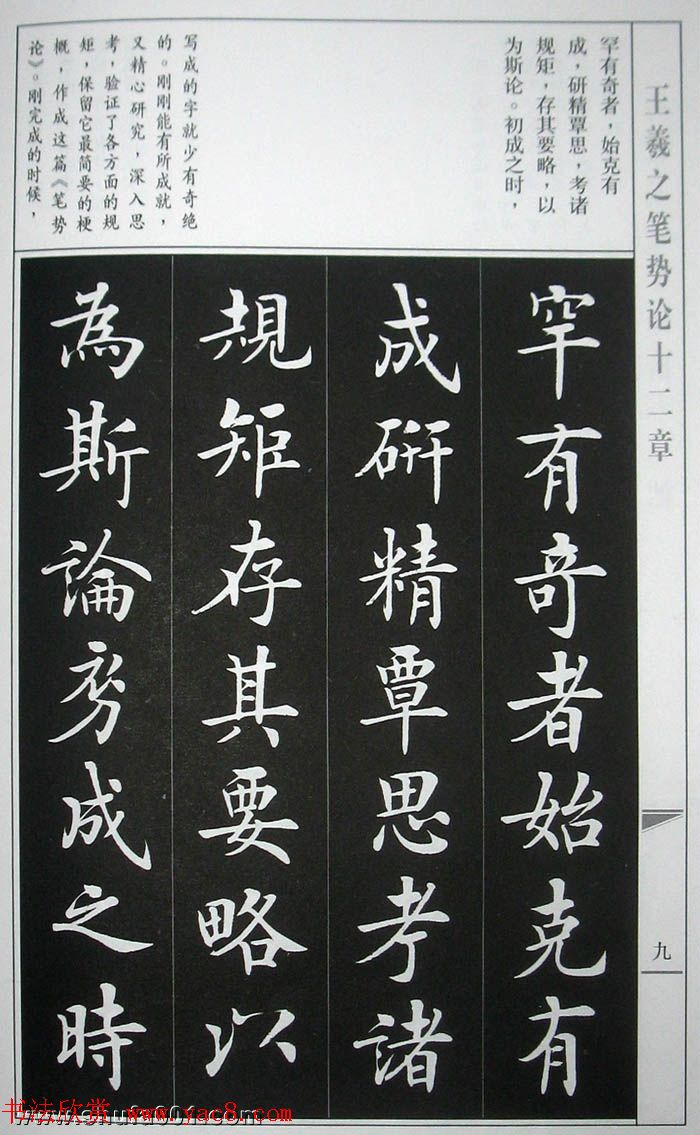 王羲之笔势论十二章
九
罕有奇者，始克有
成，研精覃思，考诸
规矩，存其要略，以
为斯论。初成之时，
写成的字就少有奇绝
的。刚刚能有所成就，
又精心研究，深入思
考，验证了各方面的规
矩，保留它最简要的梗
概，作成这篇《笔势
论》。刚完成的时候，
罕有奇者始克有
成研精覃思考諸
規矩存其要略以
為斯論初成之時
书法欣赏 www.yac8.com